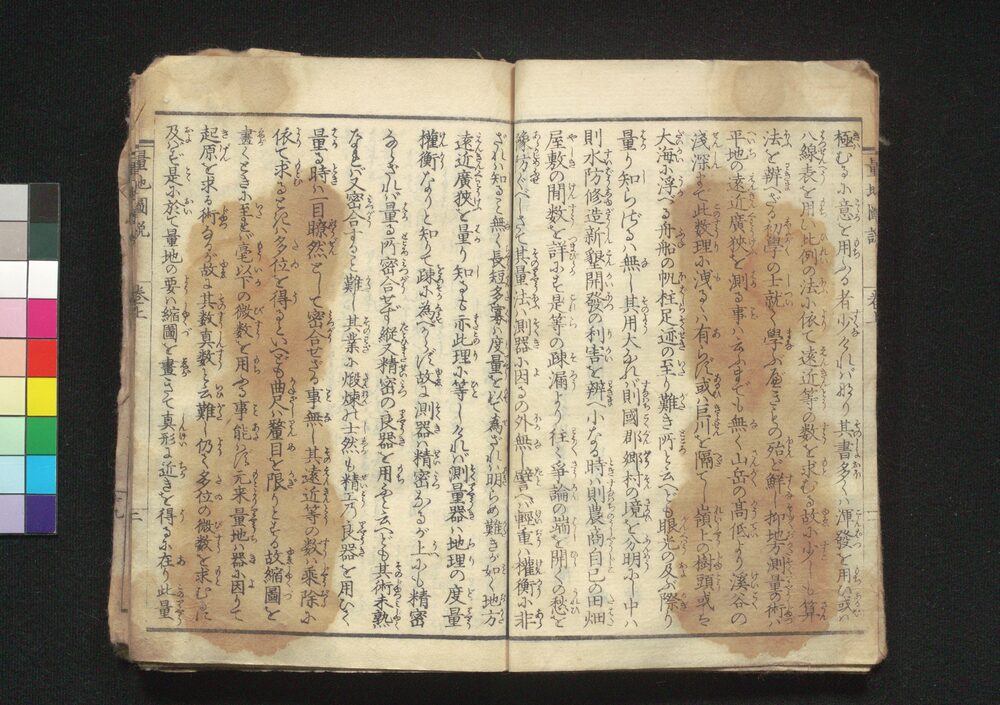 極むる小意を用ふる者少なけれバなり其書多くハ渾發を用ひ或ハ
八線表を用ひ比例の法小依て遠近等の数を求むる故小少しも算
法を辨へざる初學の士就て學ふ可きもの殆ど鮮し抑地方測量の術ハ
平地の遠近廣狭を測る事ハ云ふまでも無く山岳の高低より溪谷の
浅深まで此数理小洩るゝハ有らバ或ハ巨川を隔てし嶺上の樹頭或ハ
大海小浮べる舟舩の帆柱足迹の至り難き所と云へども眼光の及ぶ際り
量り知らざるハ無し其用大なれバ則國郡郷村の境を分明小し中ハ
則水防修造新墾開發の利害を辨へ小なる時ハ則農商自己の田畑
屋敷の間数を詳小も是等の疎漏より往々争論の端を開くの愁を
豫め防ぐべしさて其量法ハ測器小因るの外無し譬へバ輕重ハ權衡小非
ざれハ知ること無く長短多寡ハ度量を以て為ざれバ明らめ難きが如く地方
遠近廣狭を量り知るも亦此理小等しけれバ測量器ハ地理の度量
權衡なりと知りて疎小為べからず故よ測器ハ精密あるが上小も精密
ならざれバ量る所密合せず縦又精密の良器を用ふと云へども其術未熟
なれバ又密合すること難し其業小煅煉の士然も精工の良器を用ひて
量る時ハ一目瞭然として密合せざる事無し其遠近等の数ハ乗除小
依て求るごとに多位を得るといへども曲尺ハ釐目を限りとす故縮圖を
畫くとき小至れバ毫以下の微数を用ふる事能はず元来量地ハ器小因りて
起原を求る術なるが故よ其数真数と云難し仍て多位の微数を求むるに
及バず是小於て量地の要ハ縮圖を畫きて真形よ近きを得る小在り此量
量地圖説
卷上
二